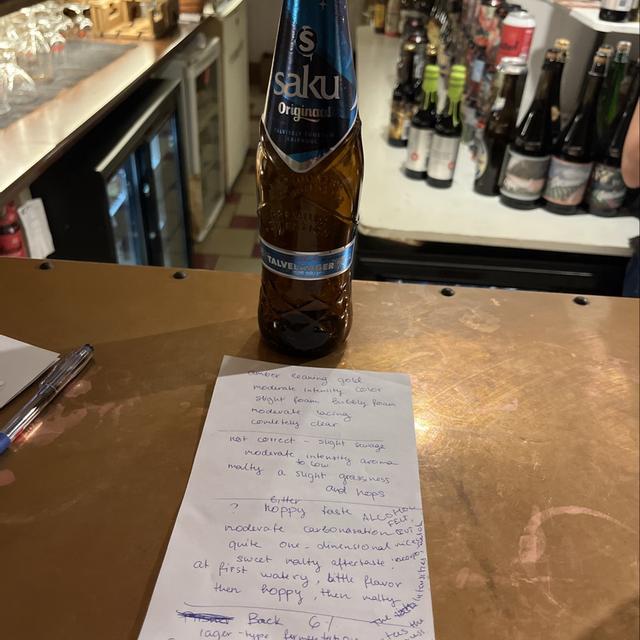 saku
Originaal
TALVELAGER
amber leaning gold
moderate intensity color
slight foam bubbly foam
moderate lacing
completely clear
not correct - slight sewage
moderate intensity aroma
to low
malty a slight grassness
and hops
bitter
? hoppy taste ALCOHOL
FELT,
moderate carbonation BUT
quite one-dimensional
sweet malty aftertaste
at first watery, little flavor
then hoppy, then malty
Back 6%
lager-type fermentation